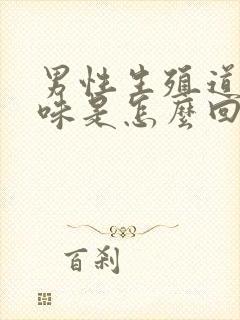 男性生殖道
味是怎麼回
百刹